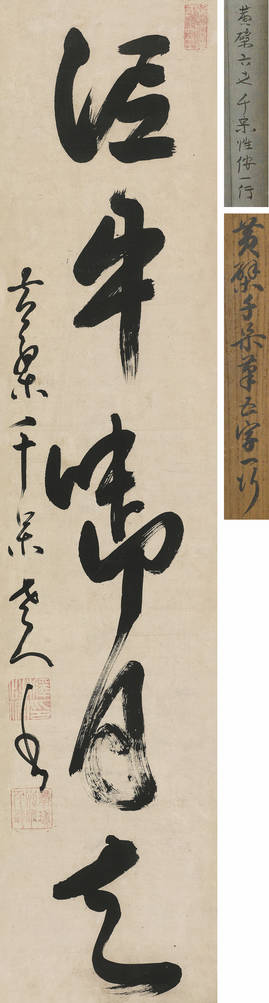 泥牛啣月走
黄檗千呆老人書
黄檗六世千呆性侒一行
黄檗千呆筆五字一行